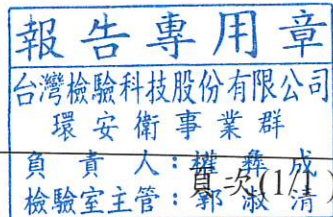 報告專用章
台灣檢驗科技股份有限公司
環安衛事業群
負責人：權彝成
頁次(1/1)
檢驗室主管：郭淑清